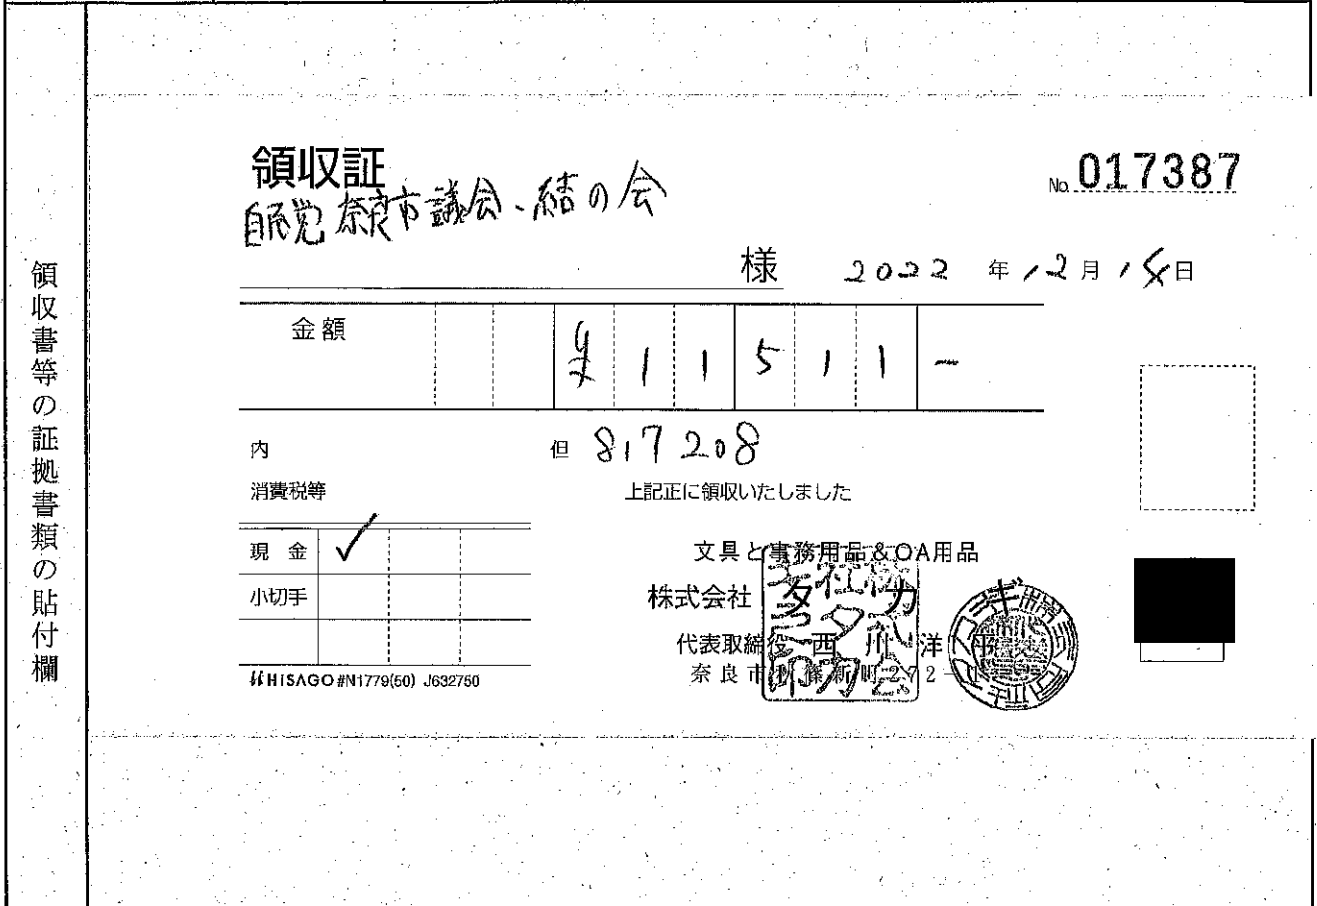 領収書等の証拠書類の貼付欄
領収証
No. 017387
自民党奈良市議会、結の会
様 2022 年 12月 15日
金額 ¥ 1 1 5 1 1 -
内 但 817208
消費税等 上記正に領収いたしました
現金 ✓
小切手
文具と事務用品&OA用品
株式会社 タカギ
代表取締役 西川洋平
奈良市秋篠新町272-
HISAGO #N1779(50) J632750